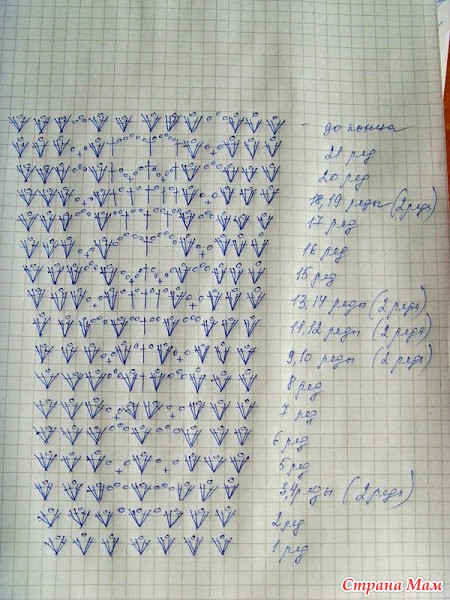 до конца
21 ред
20 ред
18,19 реды (2 реда)
17 ред
16 ред
15 ред
13,14 реды (2 реда)
11,12 реды (2 реда)
9,10 реды (2 реда)
8 ред
7 ред
6 ред
5 ред
3,4 реды (2 реда)
2 ред
1 ред
Страна Мам